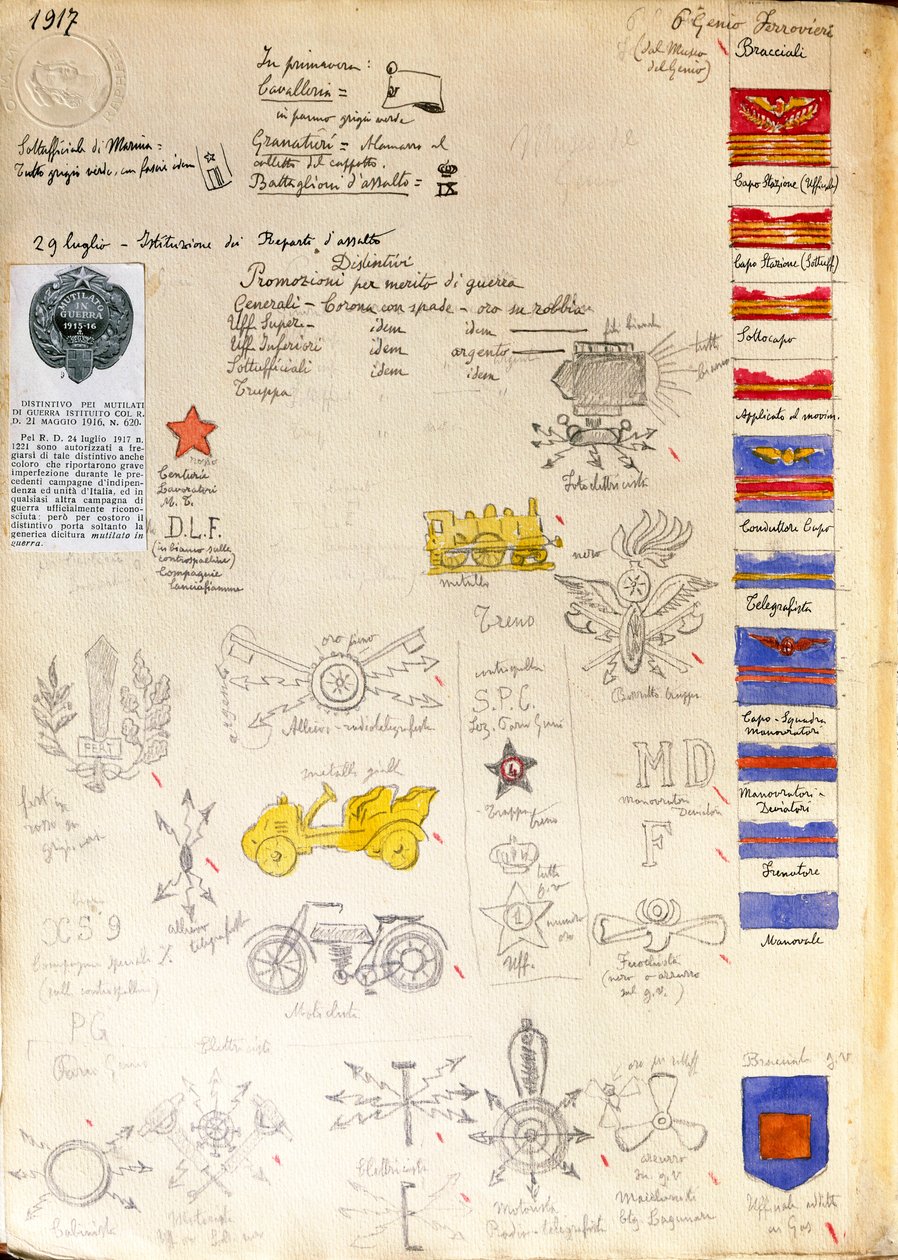 1917
6° Genio Ferrovieri
(dal Museo
del Genio)
Bracciali
In primavera:
Cavalleria =
in panno grigio verde
Granatieri = Alamaro al
colletto del cappotto.
Battaglioni d'assalto =
IX
Sottufficiali di Marina =
Tutto grigio verde, con fascie idem
29 luglio - Istituzione dei Reparti d'assalto
Distintivi
Promozioni per merito di guerra
Generali - Corona con spade - oro su robbia
Uff Super. - idem idem
Uff Inferiori idem argento
Sottufficiali idem idem
Truppa
MUTILATO
IN
GUERRA
1915-16
DISTINTIVO PEI MUTILATI
DI GUERRA ISTITUITO COL R.
D. 21 MAGGIO 1916, N. 620.
Pel R. D. 24 luglio 1917 n.
1221 sono autorizzati a fre-
giarsi di tale distintivo anche
coloro che riportarono grave
imperfezione durante le pre-
cedenti campagne d'indipen-
denza ed unità d'Italia, ed in
qualsiasi altra campagna di
guerra ufficialmente ricono-
sciuta: però per costoro il
distintivo porta soltanto la
generica dicitura mutilato in
guerra.
rosso
Centuria
Lavoratori
M. T.
D.L.F.
(in bianco sulle
controspalline)
Compagnie
Lanciafiamme
tutti
bianco
Fotoelettricista
metallo
nero
Treno
controspalline
S.P.C.
4
Truppa treno
tutto
g.v
1
numero
oro
Uff.
Capo Stazione (Ufficiale)
Capo Stazione (Sottuff)
Sottocapo
Applicato al movim.
Conduttore Capo
Telegrafista
Capo-Squadra
Manovratori
Manovratori-
Deviatori
Frenatore
Manovale
oro pieno
Allievo-radiotelegrafista
FERT
metallo giallo
allievo
telegrafista
Motociclista
MD
Manovratori
Deviatori
F
Fuochista
(nero o azzurro
sul g.v.)
XS9
Compagnie speciali
(sulle controspalline)
PG
Parco Genio
Elettricisti
Elettricista
Motorista
Motorista
Radio-telegrafista
azzurro
su g.v
btg. Lagunare
Bracciale g.v
Ufficiale addetto
ai Gas